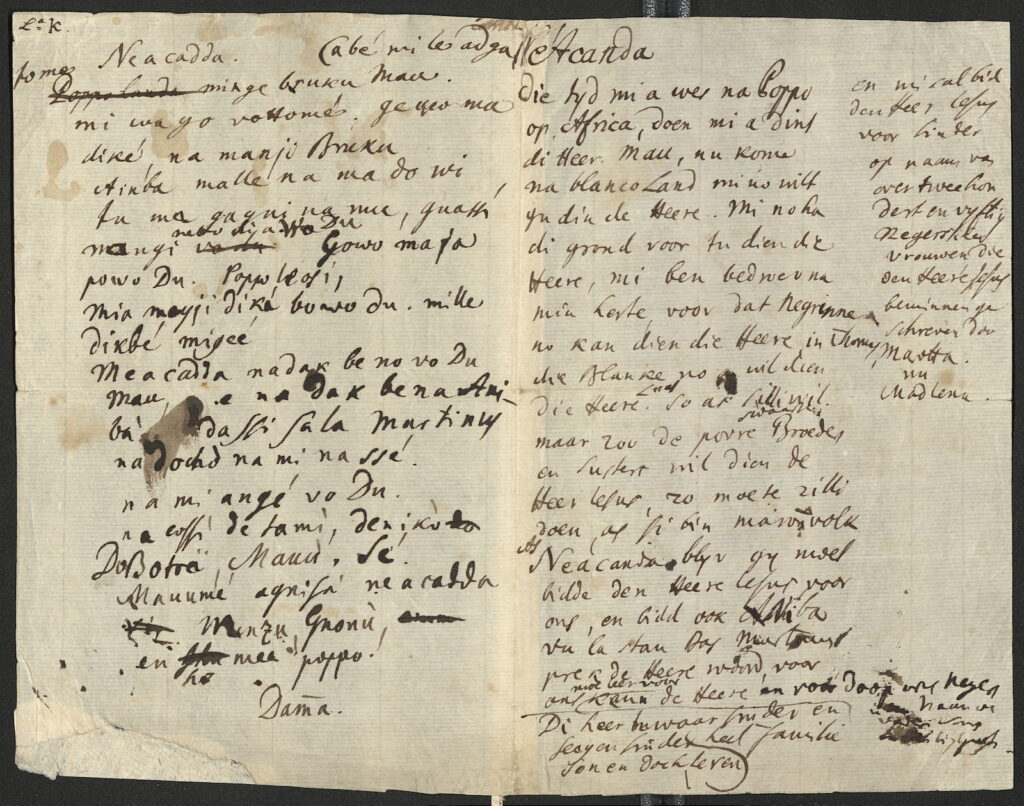 Neacadda. Cabé mi le sadga
tome
Poppolanda minge bruku Mau.
mi wago vottomé. gewo ma
diké, na manji Bruku
Ainba malle na ma do wi
tu ma gagni na mu, quassi
netto dja wo Du
mangi Gowo maja
powo Du. Poppo
mia meyji diké bowo du. mille
dikbé migeé
Meacadda nadak be no vo Du
Mau, e na dak be na Ani-
bá dassi sala Martinus
na dochd na mi na ssé.
na mi angé vo Du.
na cossi de tami, denikó
DoBotreé, Mauu. Sé.
Mauumé agnisá neacadda
Minzu, Gnonù,
en mee poppo.
Dama.
Neacanda
die tyd mi a wes na Poppo
op Africa, doen mi a dins
di Heer. Mau, nu kome
na blanco Land mi no wilt
gu din de Heere. Mi no ha
di grond voor tu dien die
Heere, mi ben bedroev na
min herte, voor dat Negrinne
no kan dien die Heere in Thomas,
die Blanke no wil dien
die Heere. So as silli wil.
maar zou de povre Broeders
en Susters wil dien de
Heer Jesus, zo moete zilli
doen, as si bin maron volk
As
Neacanda blyv gy moet
bidde den Heere Jesus voor
ons, en bidd ook Aniba
vu la stan Bas Martinus
prek de Heere woord, voor
ons moe leer voor kenn de Heere, en voor Doop ons Neger
Di heer bewaar sinder en
seegen sinder heel familie
sonen doch leven
en mi sal bid
den Heer Jesus
voor sinder
op naam van
over tweehon
dert en vyftig
Negersken
vrouwen die
den Heere Jesus
beminnen ge
schreven door
Marotta.
nu
Madlena.